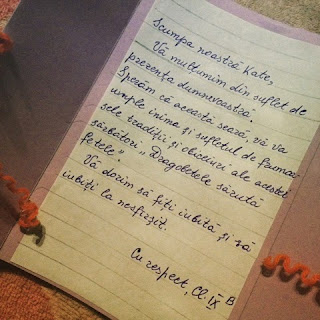 Scumpa neastră Kate,
Vă mulțumim din suflet de
prezența dumnvoastră!
Sperăm că această seară vă va
umple inima și sufletul de frumoa-
sele tradiții și obiceiuri ale acestei
sărbători „Dragobetele sărută
fetele".
Vă dorim să fiți iubită și să
iubiți la nesfîrșit.
Cu respect, Cl. IX B